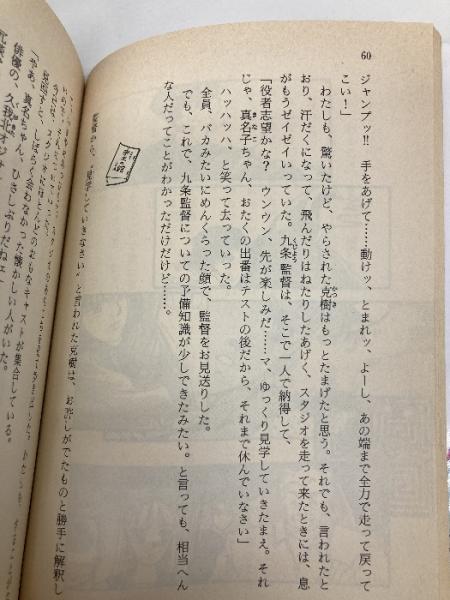 60
ジャンプッ!! 手をあげて……動けッ、とまれッ、よーし、あの端まで全力で走って戻って
こい!」
わたしも、驚いたけど、やらされた克樹はもっとたまげたと思う。それでも、言われたと
かつき
おり、汗だくになって、飛んだりはねたりしたあげく、スタジオを走って来たときには、息
がもうゼイゼイいっていた。九条監督は、そこで一人で納得して、
くじょう
「役者志望かな? ウンウン、先が楽しみだ……マ、ゆっくり見学していきたまえ。それ
じゃ、真名子ちゃん、おたくの出番はテストの後だから、それまで休んでいなさい」
まなこ
ハッハッハ、と笑って去っていった。
全員、バカみたいにめんくらった顔で、監督をお見送りした。
でも、これで、九条監督についての予備知識が少しできたみたい。と言っても、相当へん
な人だってことがわかっただけだけど……。
監督から、“見学していきなさい”と言われた克樹は、お許しがでたものと勝手に解釈し
キャストが集合している。
しばらく会わなかった懐かしい人がいた。
「やあ、真名ちゃん、ひさしぶりだねェ
俳優の、久我北オ